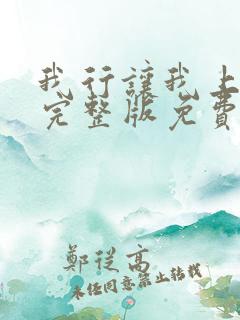 我行讓我上
完整版免費
鄭從高
未经同意禁止转载